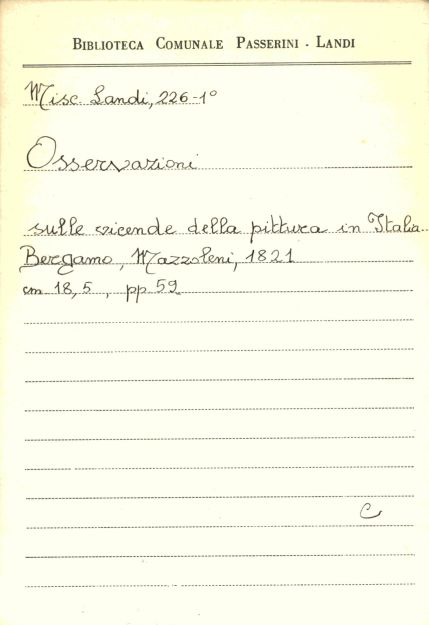 BIBLIOTECA COMUNALE PASSERINI - LANDI
Misc. Landi, 226-1°
Osservazioni
sulle vicende della pittura in Italia.
Bergamo, Mazzoleni, 1821
cm 18,5, pp 59
C